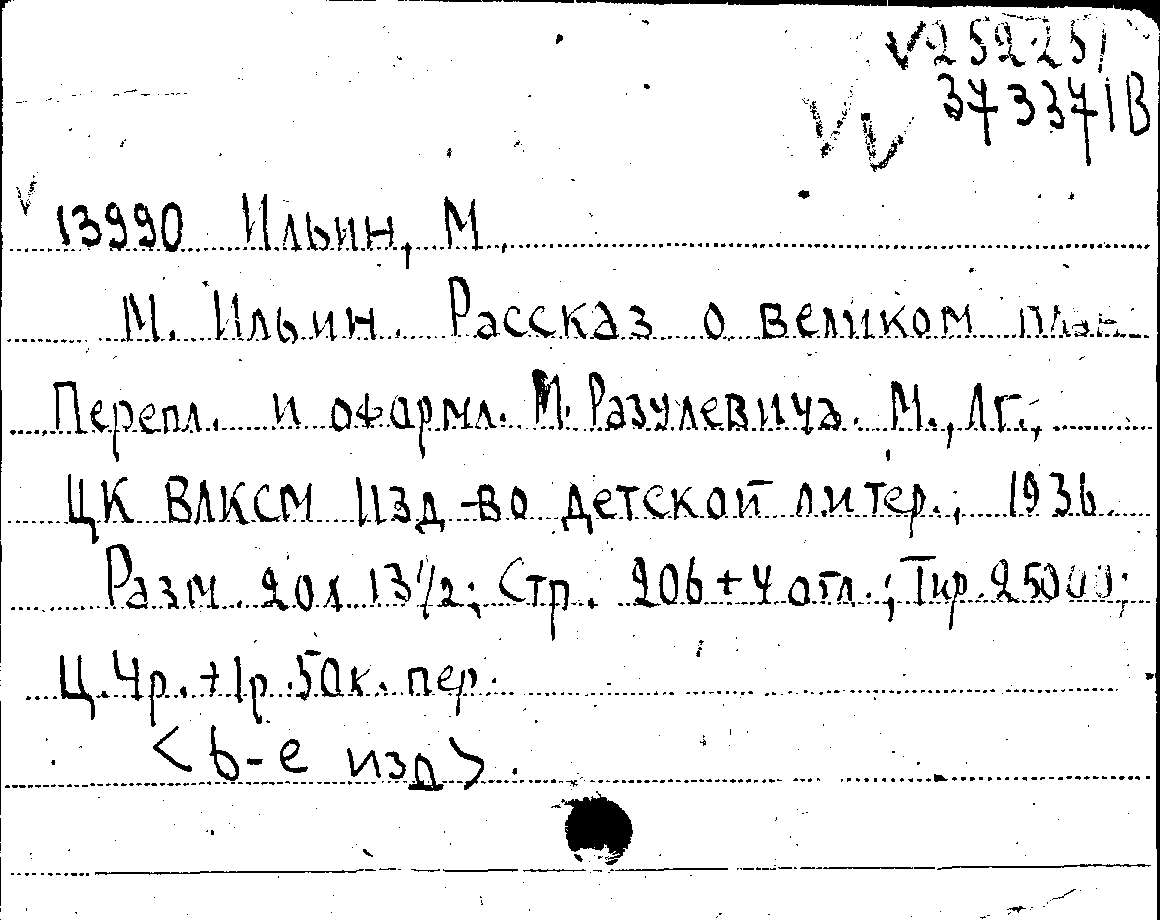 √252251
373371В
13990 Ильин, М.
М. Ильин. Рассказ о великом план
Перепл. и оформл. М. Разулевича. М., Лг.,
ЦК ВЛКСМ Изд-во детской литер., 1936.
Разм. 20х13 1/2; Стр. 206+4 отл.; Тир. 25000;
Ц. 4р.+1р.50к. пер.
<6-е изд>.